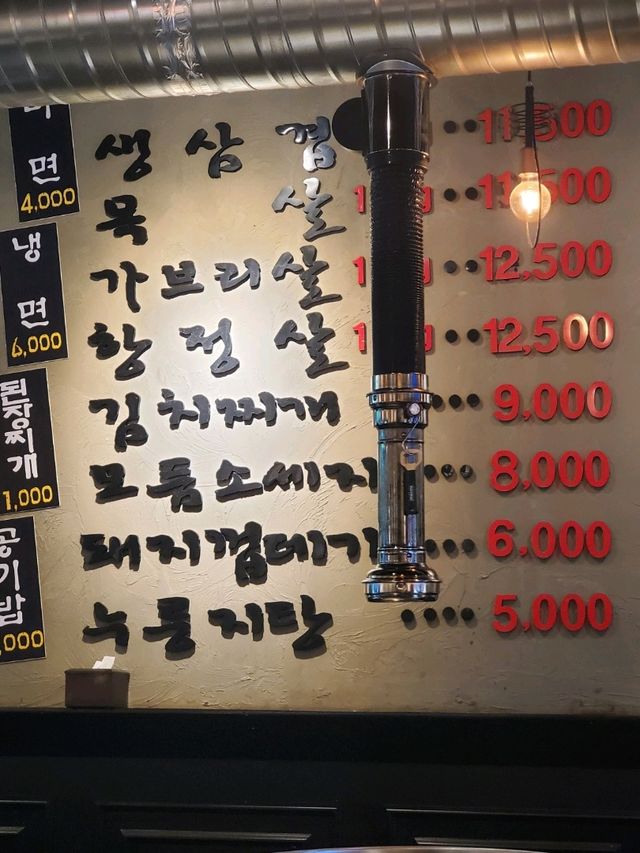 면
4,000
냉면
6,000
된장찌개
1,000
공기밥
,000
생삼겹 11,500
목살 1 11,500
가브리살 1 g 12,500
항정살 1 g 12,500
김치찌개 9,000
모듬소세지 8,000
돼지껍데기 6,000
누룽지탕 5,000